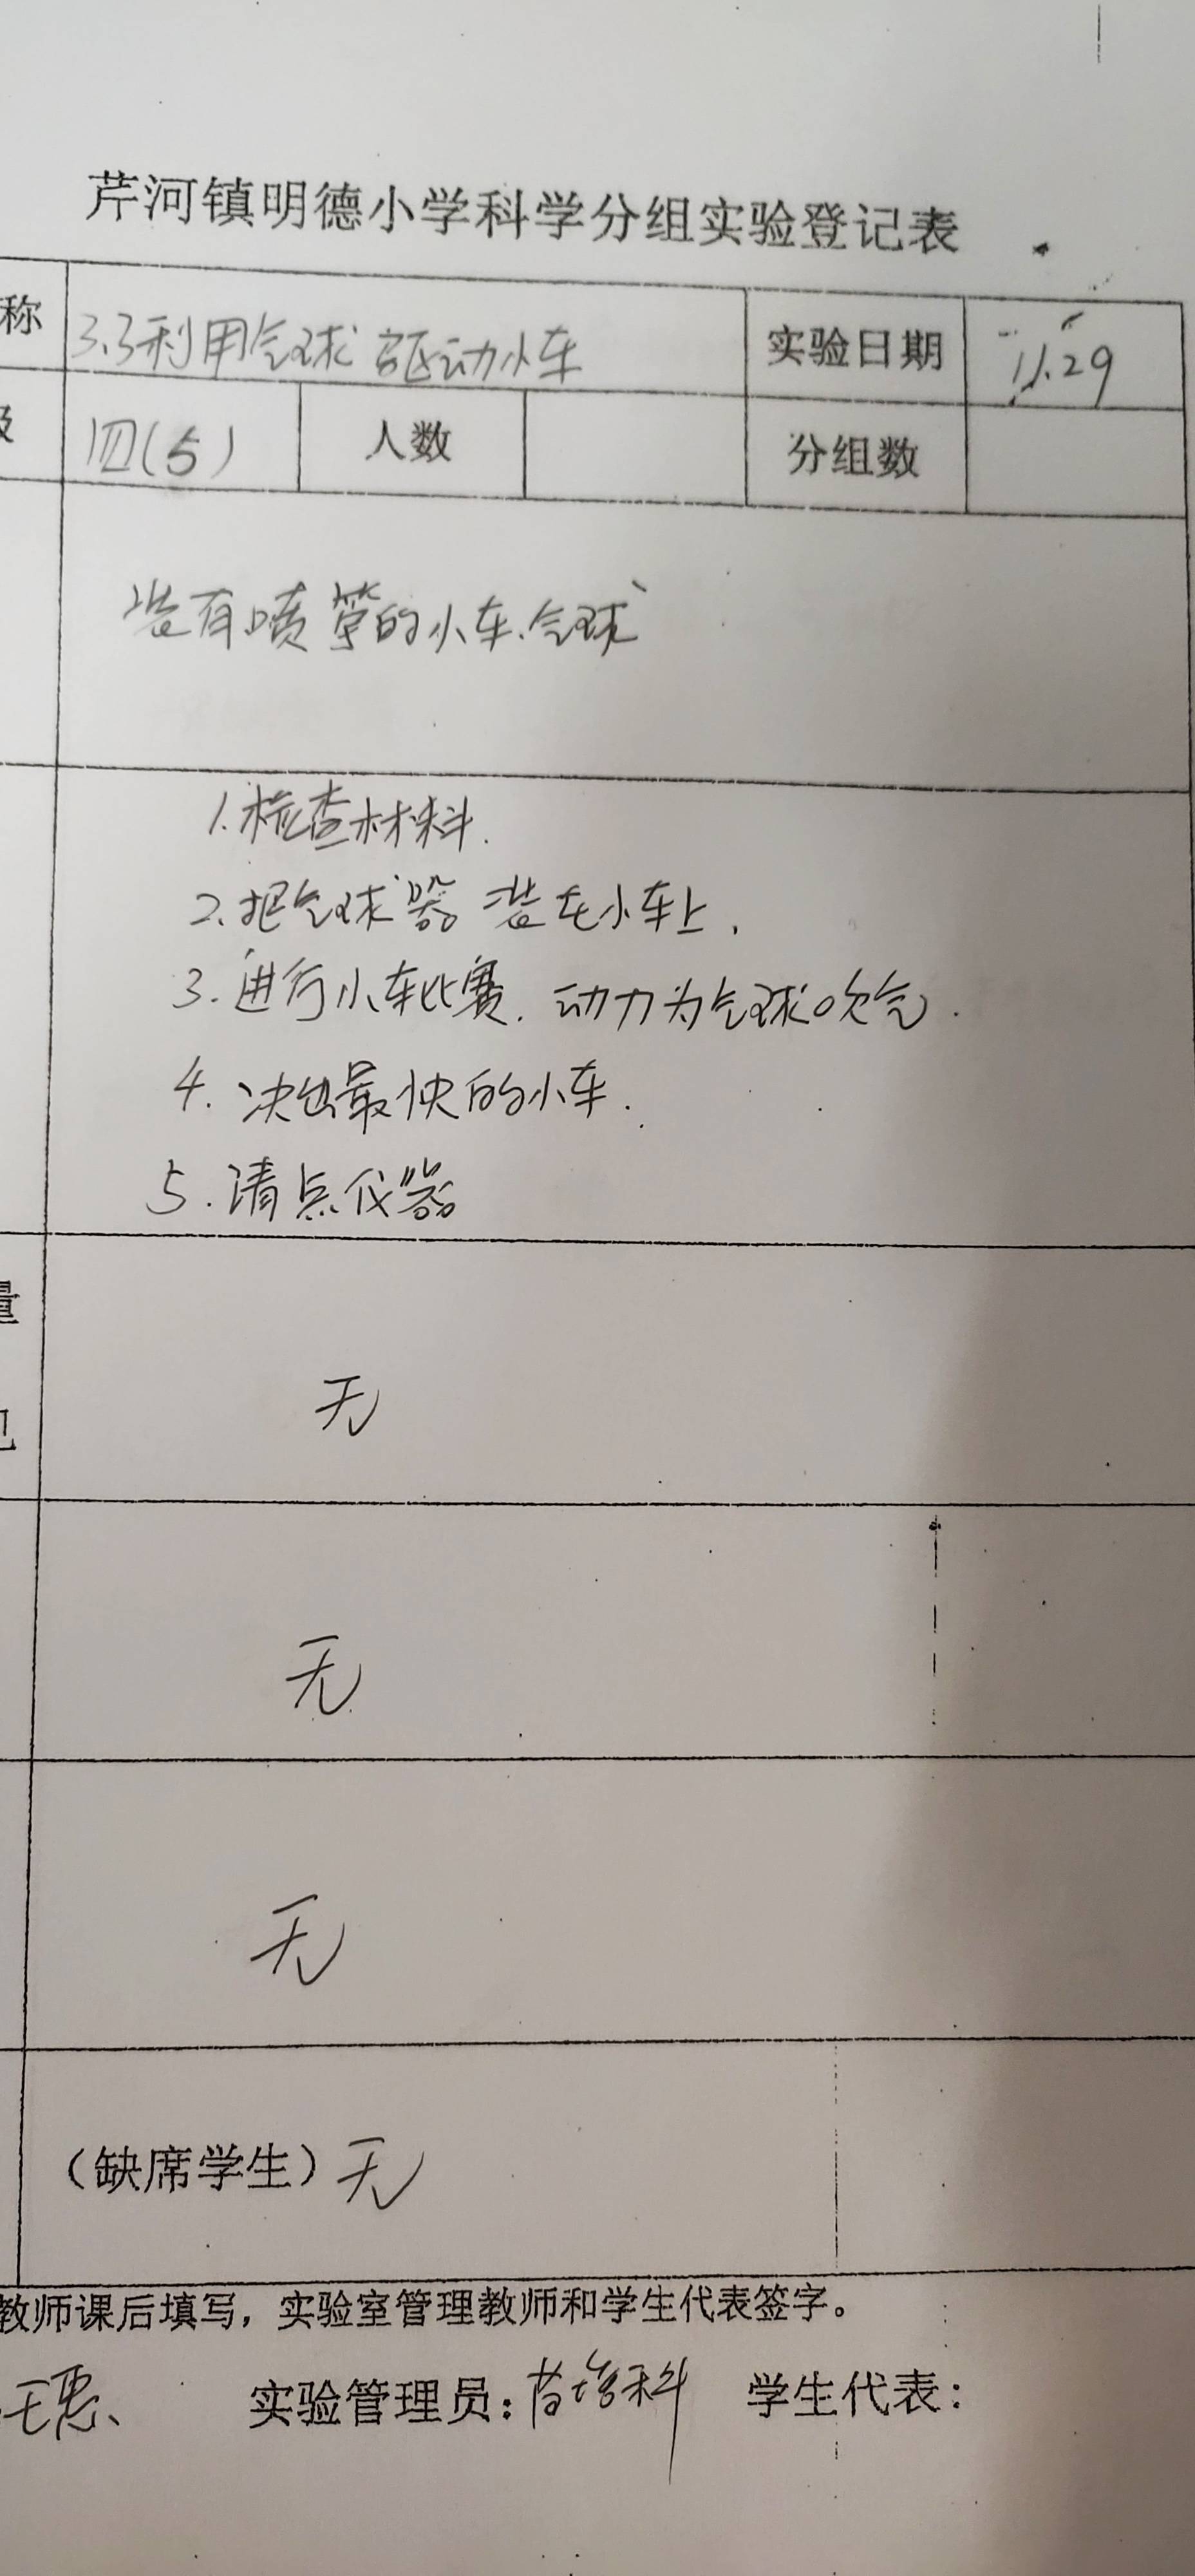 芹河镇明德小学科学分组实验登记表
称 3.3利用气球驱动小车 实验日期 11.29
级 四(5) 人数 分组数
装有喷管的小车.气球
1.检查材料.
2.把气球器装在小车上.
3.进行小车比赛.动力为气球吹气.
4.决出最快的小车.
5.请点仪器
量
无
无
无
(缺席学生)无
教师课后填写，实验室管理教师和学生代表签字。
实验管理员: 学生代表: